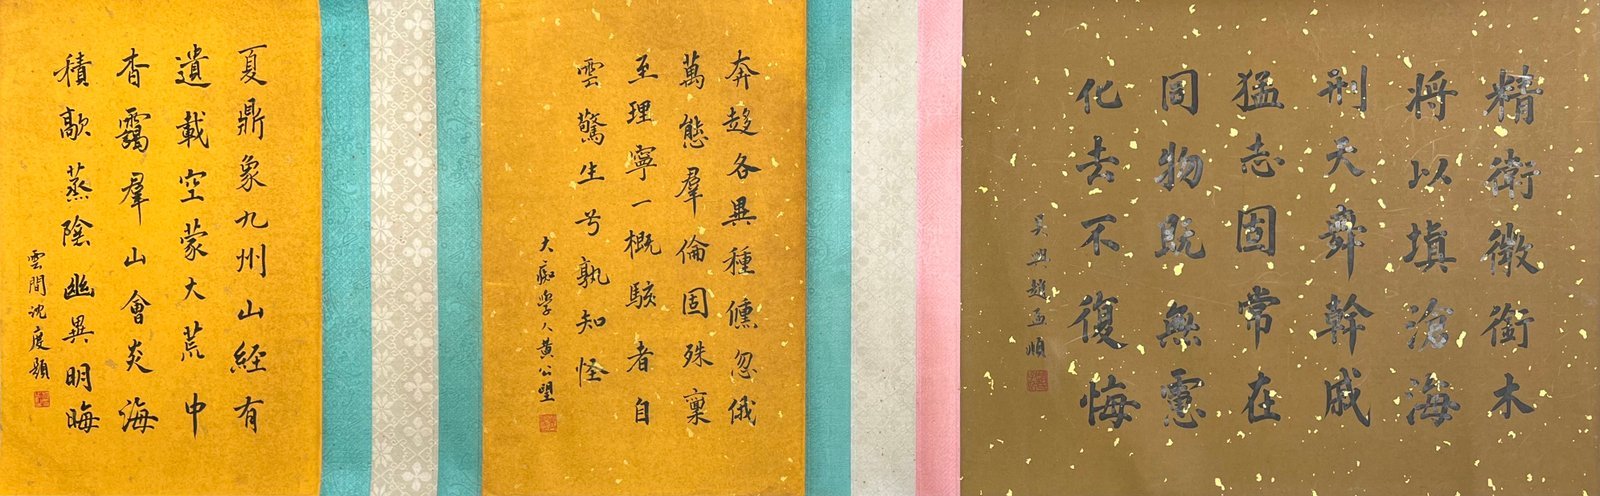 精衛微銜木
將以填滄海
刑天舞幹戚
猛志固常在
同物既無慮
化去不復悔
吳興趙孟頫
奔趍各異種儵忽俄
萬態羣倫固殊稟
至理寧一概駭者自
雲驚生号孰知怪
大痴學人黃公望
夏鼎象九州山經有
遺載空蒙大荒中
杳靄羣山會炎海
積歊蒸陰幽異明晦
雲間沈度題